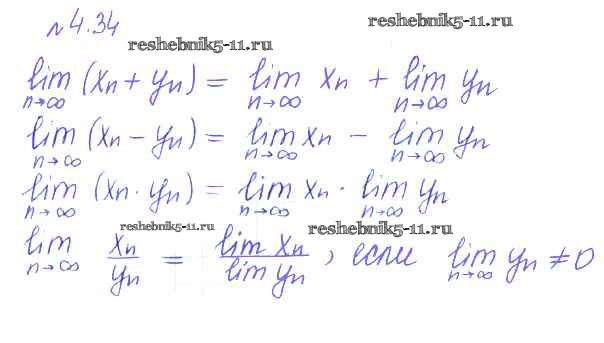 №4.34
reshebnik5-11.ru
reshebnik5-11.ru
lim n→∞ (xn + yn) = lim n→∞ xn + lim n→∞ yn
lim n→∞ (xn − yn) = lim n→∞ xn − lim n→∞ yn
lim n→∞ (xn · yn) = lim n→∞ xn · lim n→∞ yn
reshebnik5-11.ru
reshebnik5-11.ru
lim n→∞ xn/yn = lim xn/lim yn , если lim n→∞ yn ≠ 0